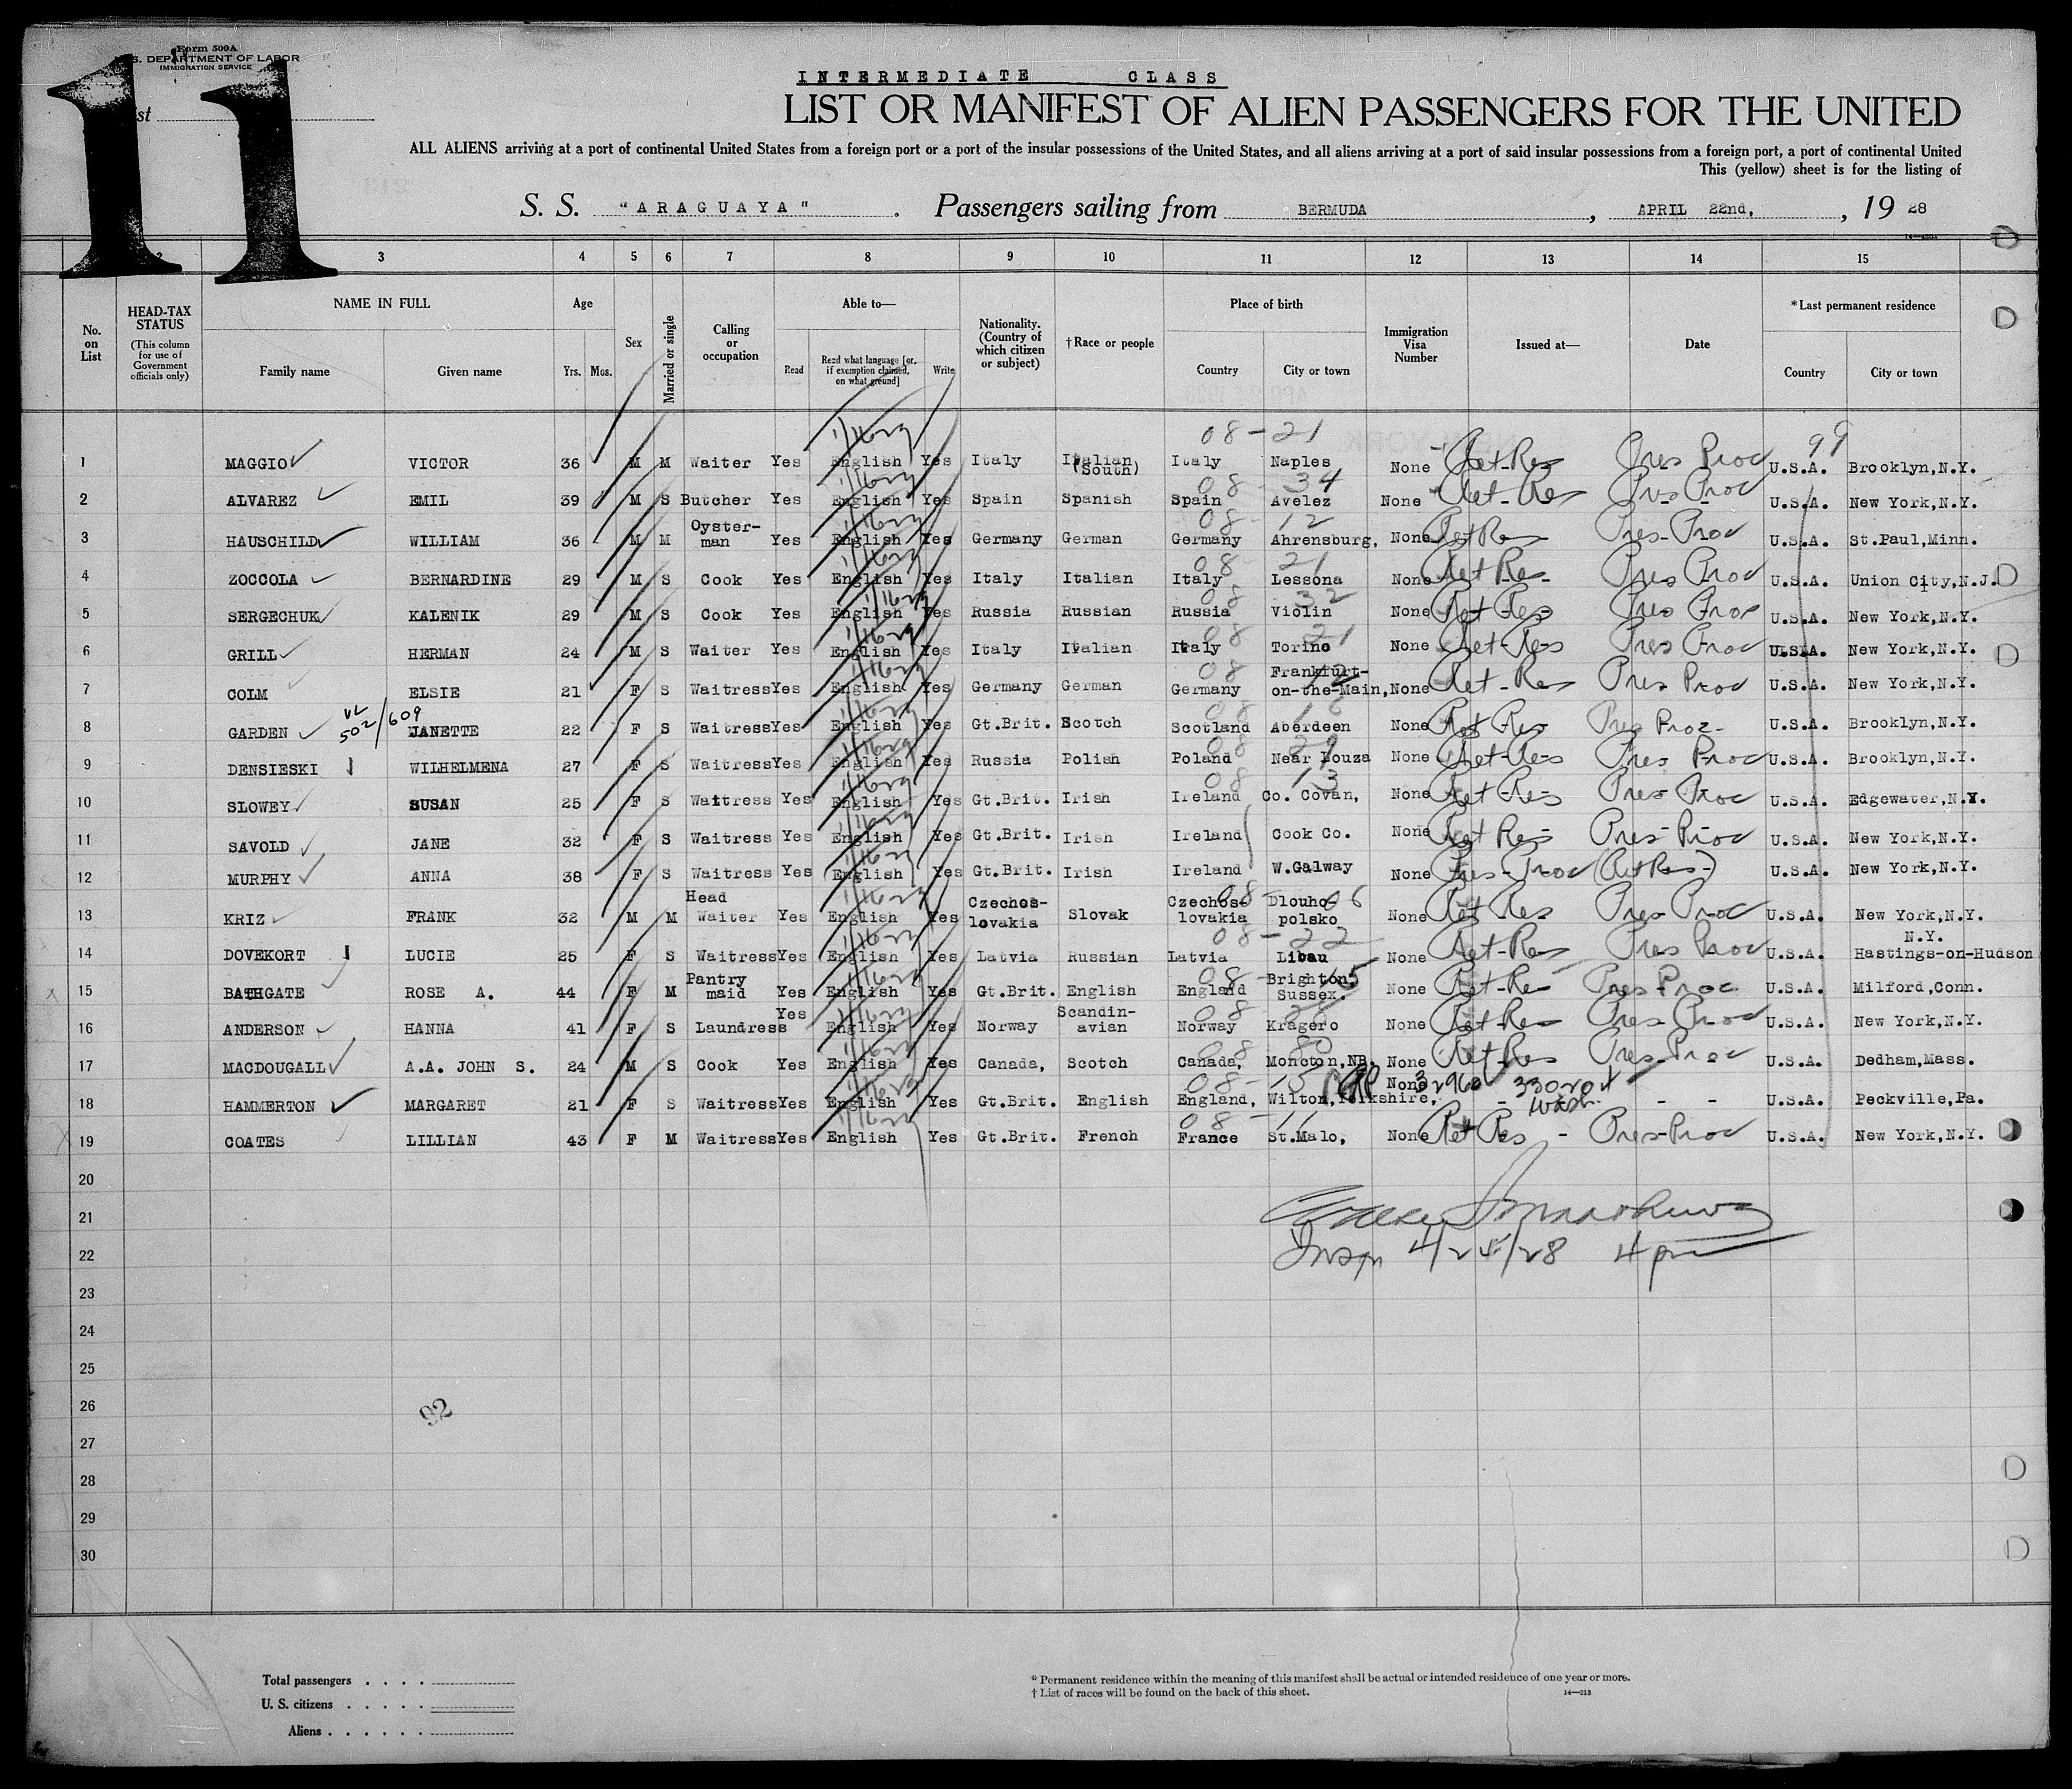 11
Form 500A
U.S. DEPARTMENT OF LABOR
IMMIGRATION SERVICE
INTERMEDIATE CLASS
LIST OR MANIFEST OF ALIEN PASSENGERS FOR THE UNITED
ALL ALIENS arriving at a port of continental United States from a foreign port or a port of the insular possessions of the United States, and all aliens arriving at a port of said insular possessions from a foreign port, a port of continental United
This (yellow) sheet is for the listing of
S. S. "ARAGUAYA" . Passengers sailing from BERMUDA , APRIL 22nd, , 19 28
2 3 4 5 6 7 8 9 10 11 12 13 14 15
No. on List
HEAD-TAX STATUS (This column for use of Government officials only)
NAME IN FULL Family name Given name
Age Yrs. Mos.
Sex
Married or single
Calling or occupation
Able to— Read Read what language [or, if exemption claimed, on what ground] Write
Nationality. (Country of which citizen or subject)
†Race or people
Place of birth Country City or town
Immigration Visa Number
Issued at—
Date
*Last permanent residence Country City or town
08-21 99
1 MAGGIO VICTOR 36 M M Waiter Yes English Yes Italy Italian (South) Italy Naples None Ret-Res Pres Proc U.S.A. Brooklyn,N.Y.
08 - 34
2 ALVAREZ EMIL 39 M S Butcher Yes English Yes Spain Spanish Spain Avelez None Ret-Res Pres Proc U.S.A. New York,N.Y.
08- 12
3 HAUSCHILD WILLIAM 36 M M Oyster-man Yes English Yes Germany German Germany Ahrensburg, None Ret Res Pres-Proc U.S.A. St.Paul,Minn.
08 21
4 ZOCCOLA BERNARDINE 29 M S Cook Yes English Yes Italy Italian Italy Lessona None Ret Res- Pres Proc U.S.A. Union City,N.J.
08 32
5 SERGECHUK KALENIK 29 M S Cook Yes English Yes Russia Russian Russia Violin None Ret-Res Pres Proc U.S.A. New York,N.Y.
08 21
6 GRILL HERMAN 24 M S Waiter Yes English Yes Italy Italian Italy Torino None Ret-Res Pres Proc U.S.A. New York,N.Y.
08 12
7 COLM ELSIE 21 F S Waitress Yes English Yes Germany German Germany Frankfurt-on-the-Main, None Ret-Res Pres Proc U.S.A. New York,N.Y.
502/609
8 GARDEN JANETTE 22 F S Waitress Yes English Yes Gt.Brit. Scotch Scotland Aberdeen None Ret Res Pres Proc- U.S.A. Brooklyn,N.Y.
9 DENSIESKI WILHELMENA 27 F S Waitress Yes English Yes Russia Polish Poland Near Louza None Ret-Res Pres Proc U.S.A. Brooklyn,N.Y.
08 13
10 SLOWEY SUSAN 25 F S Waitress Yes English Yes Gt.Brit. Irish Ireland Co. Covan, None Ret-Res Pres-Proc U.S.A. Edgewater,N.Y.
11 SAVOLD JANE 32 F S Waitress Yes English Yes Gt.Brit. Irish Ireland Cook Co. None Ret Res- Pres-Proc U.S.A. New York,N.Y.
12 MURPHY ANNA 38 F S Waitress Yes English Yes Gt.Brit. Irish Ireland W.Galway None Pres-Proc (Ret Res-) U.S.A. New York,N.Y.
08 - 06
13 KRIZ FRANK 32 M M Head Waiter Yes English Yes Czechos-lovakia Slovak Czechos-lovakia Dlouho-polsko None Ret Res Pres-Proc U.S.A. New York,N.Y.
08-22
14 DOVEKORT LUCIE 25 F S Waitress Yes English Yes Latvia Russian Latvia Libau None Ret-Res Pres Proc U.S.A. N.Y. Hastings-on-Hudson
08- 15
x 15 BATHGATE ROSE A. 44 F M Pantry maid Yes English Yes Gt.Brit. English England Brighton, Sussex. None Ret-Res Pres Proc U.S.A. Milford,Conn.
16 ANDERSON HANNA 41 F S Laundress Yes English Yes Norway Scandin-avian Norway Kragero None Ret-Res Pres-Proc U.S.A. New York,N.Y.
08 80
17 MACDOUGALL A.A. JOHN S. 24 M S Cook Yes English Yes Canada, Scotch Canada, Moncton,NB. None Ret-Res Pres-Proc U.S.A. Dedham,Mass.
08-15
18 HAMMERTON MARGARET 21 F S Waitress Yes English Yes Gt.Brit. English England, Wilton,Yorkshire, None - - - U.S.A. Peckville,Pa.
08- 11
x 19 COATES LILLIAN 43 F M Waitress Yes English Yes Gt.Brit. French France St.Malo, None Ret Res - Pres-Proc U.S.A. New York,N.Y.
20
21
22 Insp 4/24/28 4 pm
23
24
25
26
92
27
28
29
30
Total passengers . . . .
U. S. citizens . . . . .
Aliens . . . . . .
* Permanent residence within the meaning of this manifest shall be actual or intended residence of one year or more.
† List of races will be found on the back of this sheet.
14—213